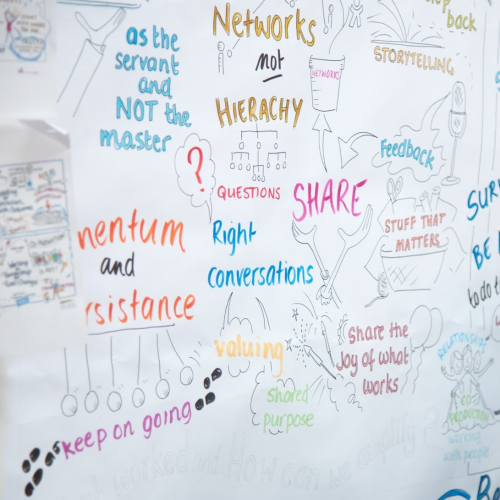 as the
servant
and
NOT the
master
Networks
not
HIERACHY
NETWORKS
STORYTELLING
back
Feedback
?
QUESTIONS
SHARE
STUFF THAT
MATTERS
mentum
and
rsistance
Right
conversations
valuing
shared
purpose
Share the
Joy of what
works
keep on going
SUR
BE
to do t
RELATIONSHIPS
CO
PRODUCTION
working
with people